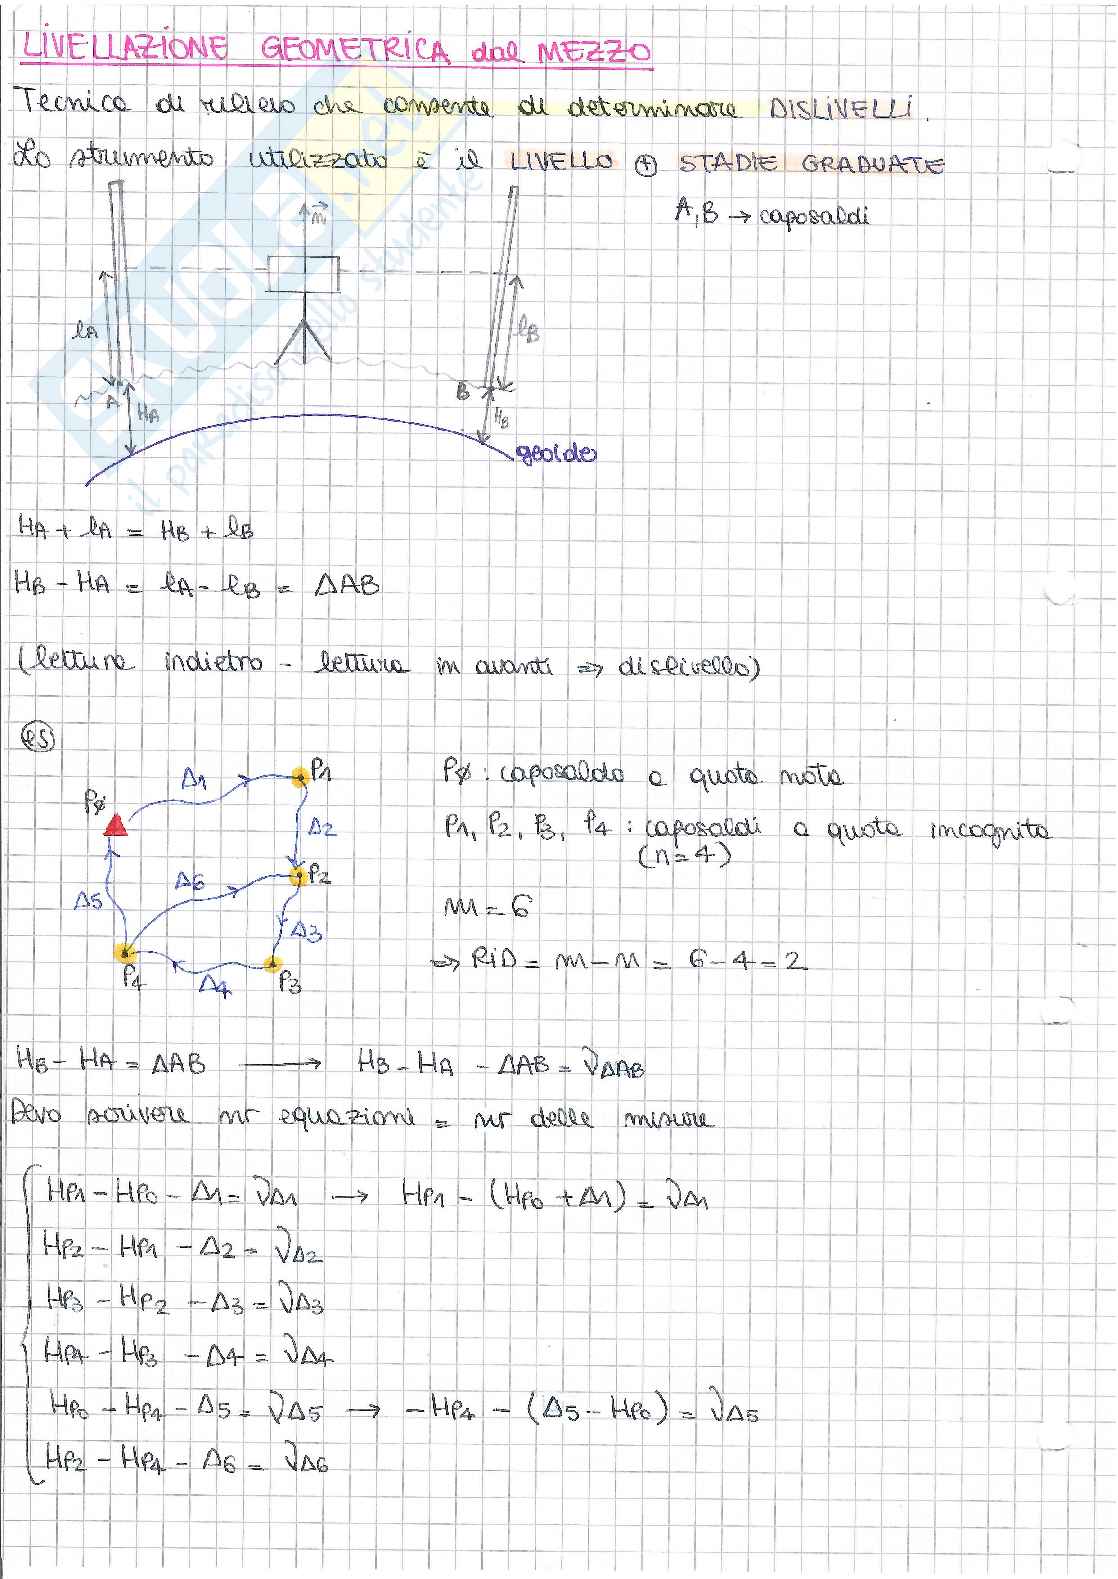 LIVELLAZIONE GEOMETRICA dal MEZZO
Tecnica di rilievo che consente di determinare DISLIVELLI.
Lo strumento utilizzato è il LIVELLO ⊕ STADIE GRADUATE
A,B → caposaldi
n
lA
lB
A
HA
B
HB
geoide
HA + lA = HB + lB
HB - HA = lA - lB = ΔAB
(lettura indietro - lettura in avanti ⇒ dislivello)
es
Δ1
P1
PØ
Δ2
Δ6
P2
Δ5
Δ3
P4
Δ4
P3
PØ : caposaldo a quota nota
P1, P2, P3, P4 : caposaldi a quota incognita
(n=4)
m = 6
⇒ RiD = m - n = 6 - 4 = 2
HB - HA = ΔAB → HB - HA - ΔAB = νΔAB
Devo scrivere nr equazioni = nr delle misure
HP1 - HP0 - Δ1 = νΔ1 → HP1 - (HP0 + Δ1) = νΔ1
HP2 - HP1 - Δ2 = νΔ2
HP3 - HP2 - Δ3 = νΔ3
HP4 - HP3 - Δ4 = νΔ4
HP0 - HP4 - Δ5 = νΔ5 → -HP4 - (Δ5 - HP0) = νΔ5
HP2 - HP4 - Δ6 = νΔ6
SKUOLA.net
il paradiso dello studente